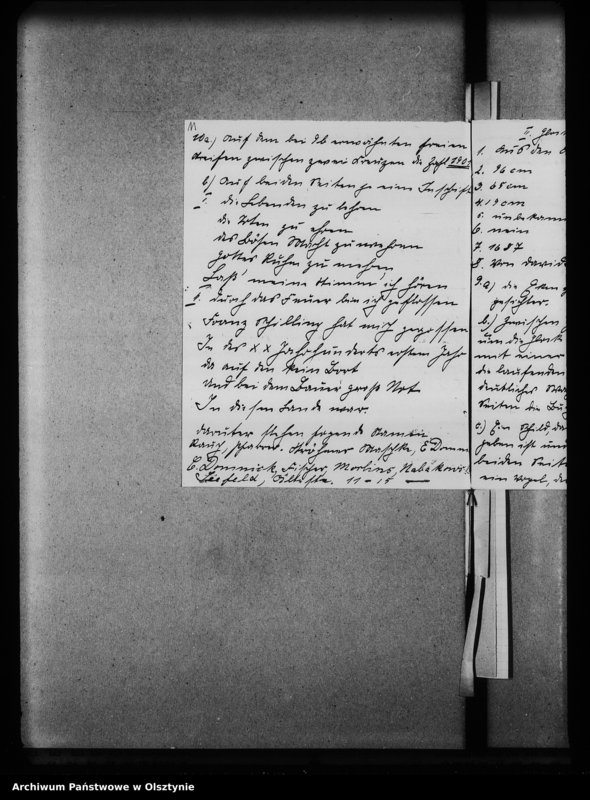 10a) Auf dem bei 9b erwähnten freien
Streifen zwischen zwei Kreuzen die Zahl 1901
b) Auf beiden Seiten je eine Inschrift
I. die Lebenden zu lehren
die Toten zu ehren
des Bösen Macht zu wehren
Gottes Ruhm zu mehren
Laß' meine Stimm' ich hören
II. Durch das Feuer bin ich geflossen
Franz Schilling hat mich gegossen
In des XX Jahrhunderts erstem Jahr
da auf den kein Brot
Und bei dem Bauer groß Not
In diesem Lande war.
darunter stehen folgende Namen
Rauch, Pfarrer. Maschke, E Domm
C. Domnick, Fischer, Morlins,
Seefeld, 11-15
II. Glock
1. Aus den
2. 96 cm
3. 65 cm
4. 19 cm
5. unbekann
6. nein
7. 1687
8. Von david
9. a) die
gesichter.
b.) Zwischen
um die Glock
mit einer
die laufenden
deutliches
Seiten die
c.) Ein Schild, da
geben ist und
beiden Seite
ein Vogel, de
Archiwum Państwowe w Olsztynie